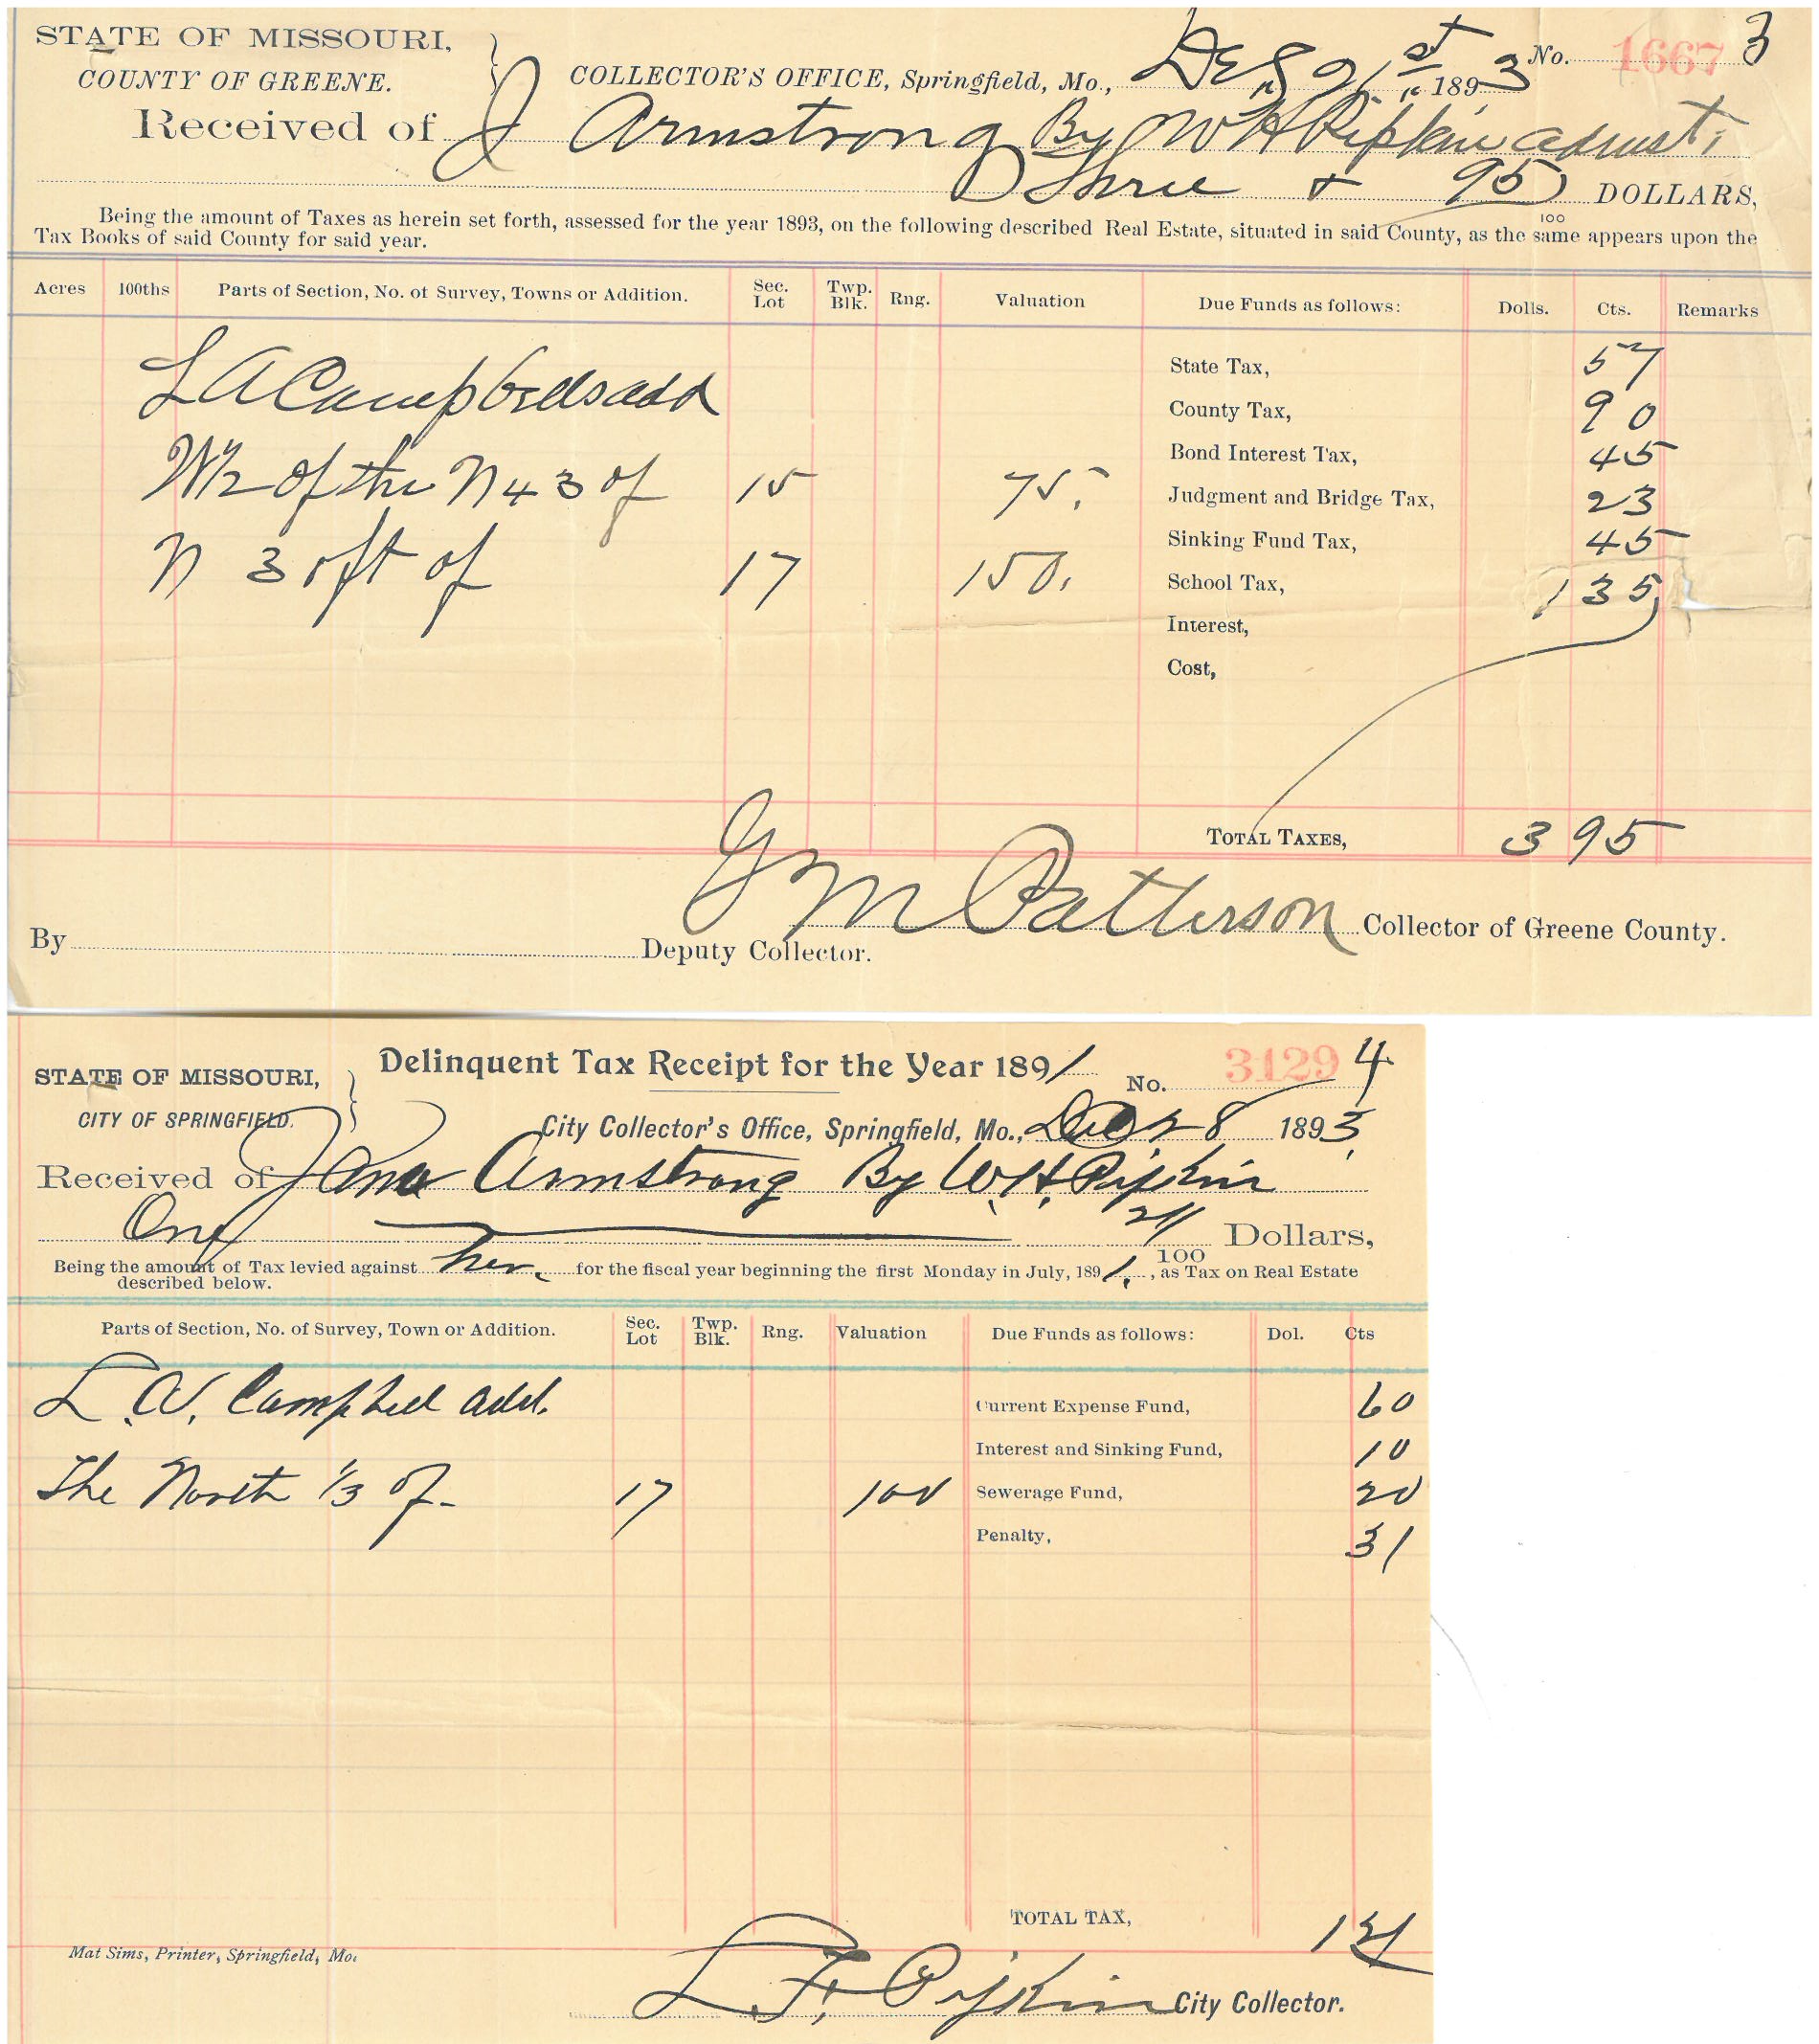 STATE OF MISSOURI,
COUNTY OF GREENE.
COLLECTOR'S OFFICE, Springfield, Mo., Dec 21st 1893 No. 1667 3
Received of J Armstrong By W H Pipkin admst.
Three + 95/100 DOLLARS,
Being the amount of Taxes as herein set forth, assessed for the year 1893, on the following described Real Estate, situated in said County, as the same appears upon the
Tax Books of said County for said year.
Acres 100ths Parts of Section, No. of Survey, Towns or Addition. Sec. Lot Twp. Blk. Rng. Valuation Due Funds as follows: Dolls. Cts. Remarks
State Tax, 57
L A Campbells add County Tax, 90
Bond Interest Tax, 45
W 1/2 of the N 43 of 15 75. Judgment and Bridge Tax, 23
Sinking Fund Tax, 45
N 30 ft of 17 150. School Tax, 1 35
Interest,
Cost,
TOTAL TAXES, 3 95
G M Patterson Collector of Greene County.
By Deputy Collector.
Delinquent Tax Receipt for the Year 1891 No. 3129 4
STATE OF MISSOURI,
CITY OF SPRINGFIELD.
City Collector's Office, Springfield, Mo., Dec 28 1893
Received of Jane Armstrong By W. H. Pipkin
One 21/100 Dollars,
Being the amount of Tax levied against her. for the fiscal year beginning the first Monday in July, 1891., as Tax on Real Estate
described below.
Parts of Section, No. of Survey, Town or Addition. Sec. Lot Twp. Blk. Rng. Valuation Due Funds as follows: Dol. Cts
L. A. Campbell add. Current Expense Fund, 60
Interest and Sinking Fund, 10
The North 1/3 of 17 100 Sewerage Fund, 20
Penalty, 31
TOTAL TAX, 1 21
Mat Sims, Printer, Springfield, Mo.
L. F. Pipkin City Collector.